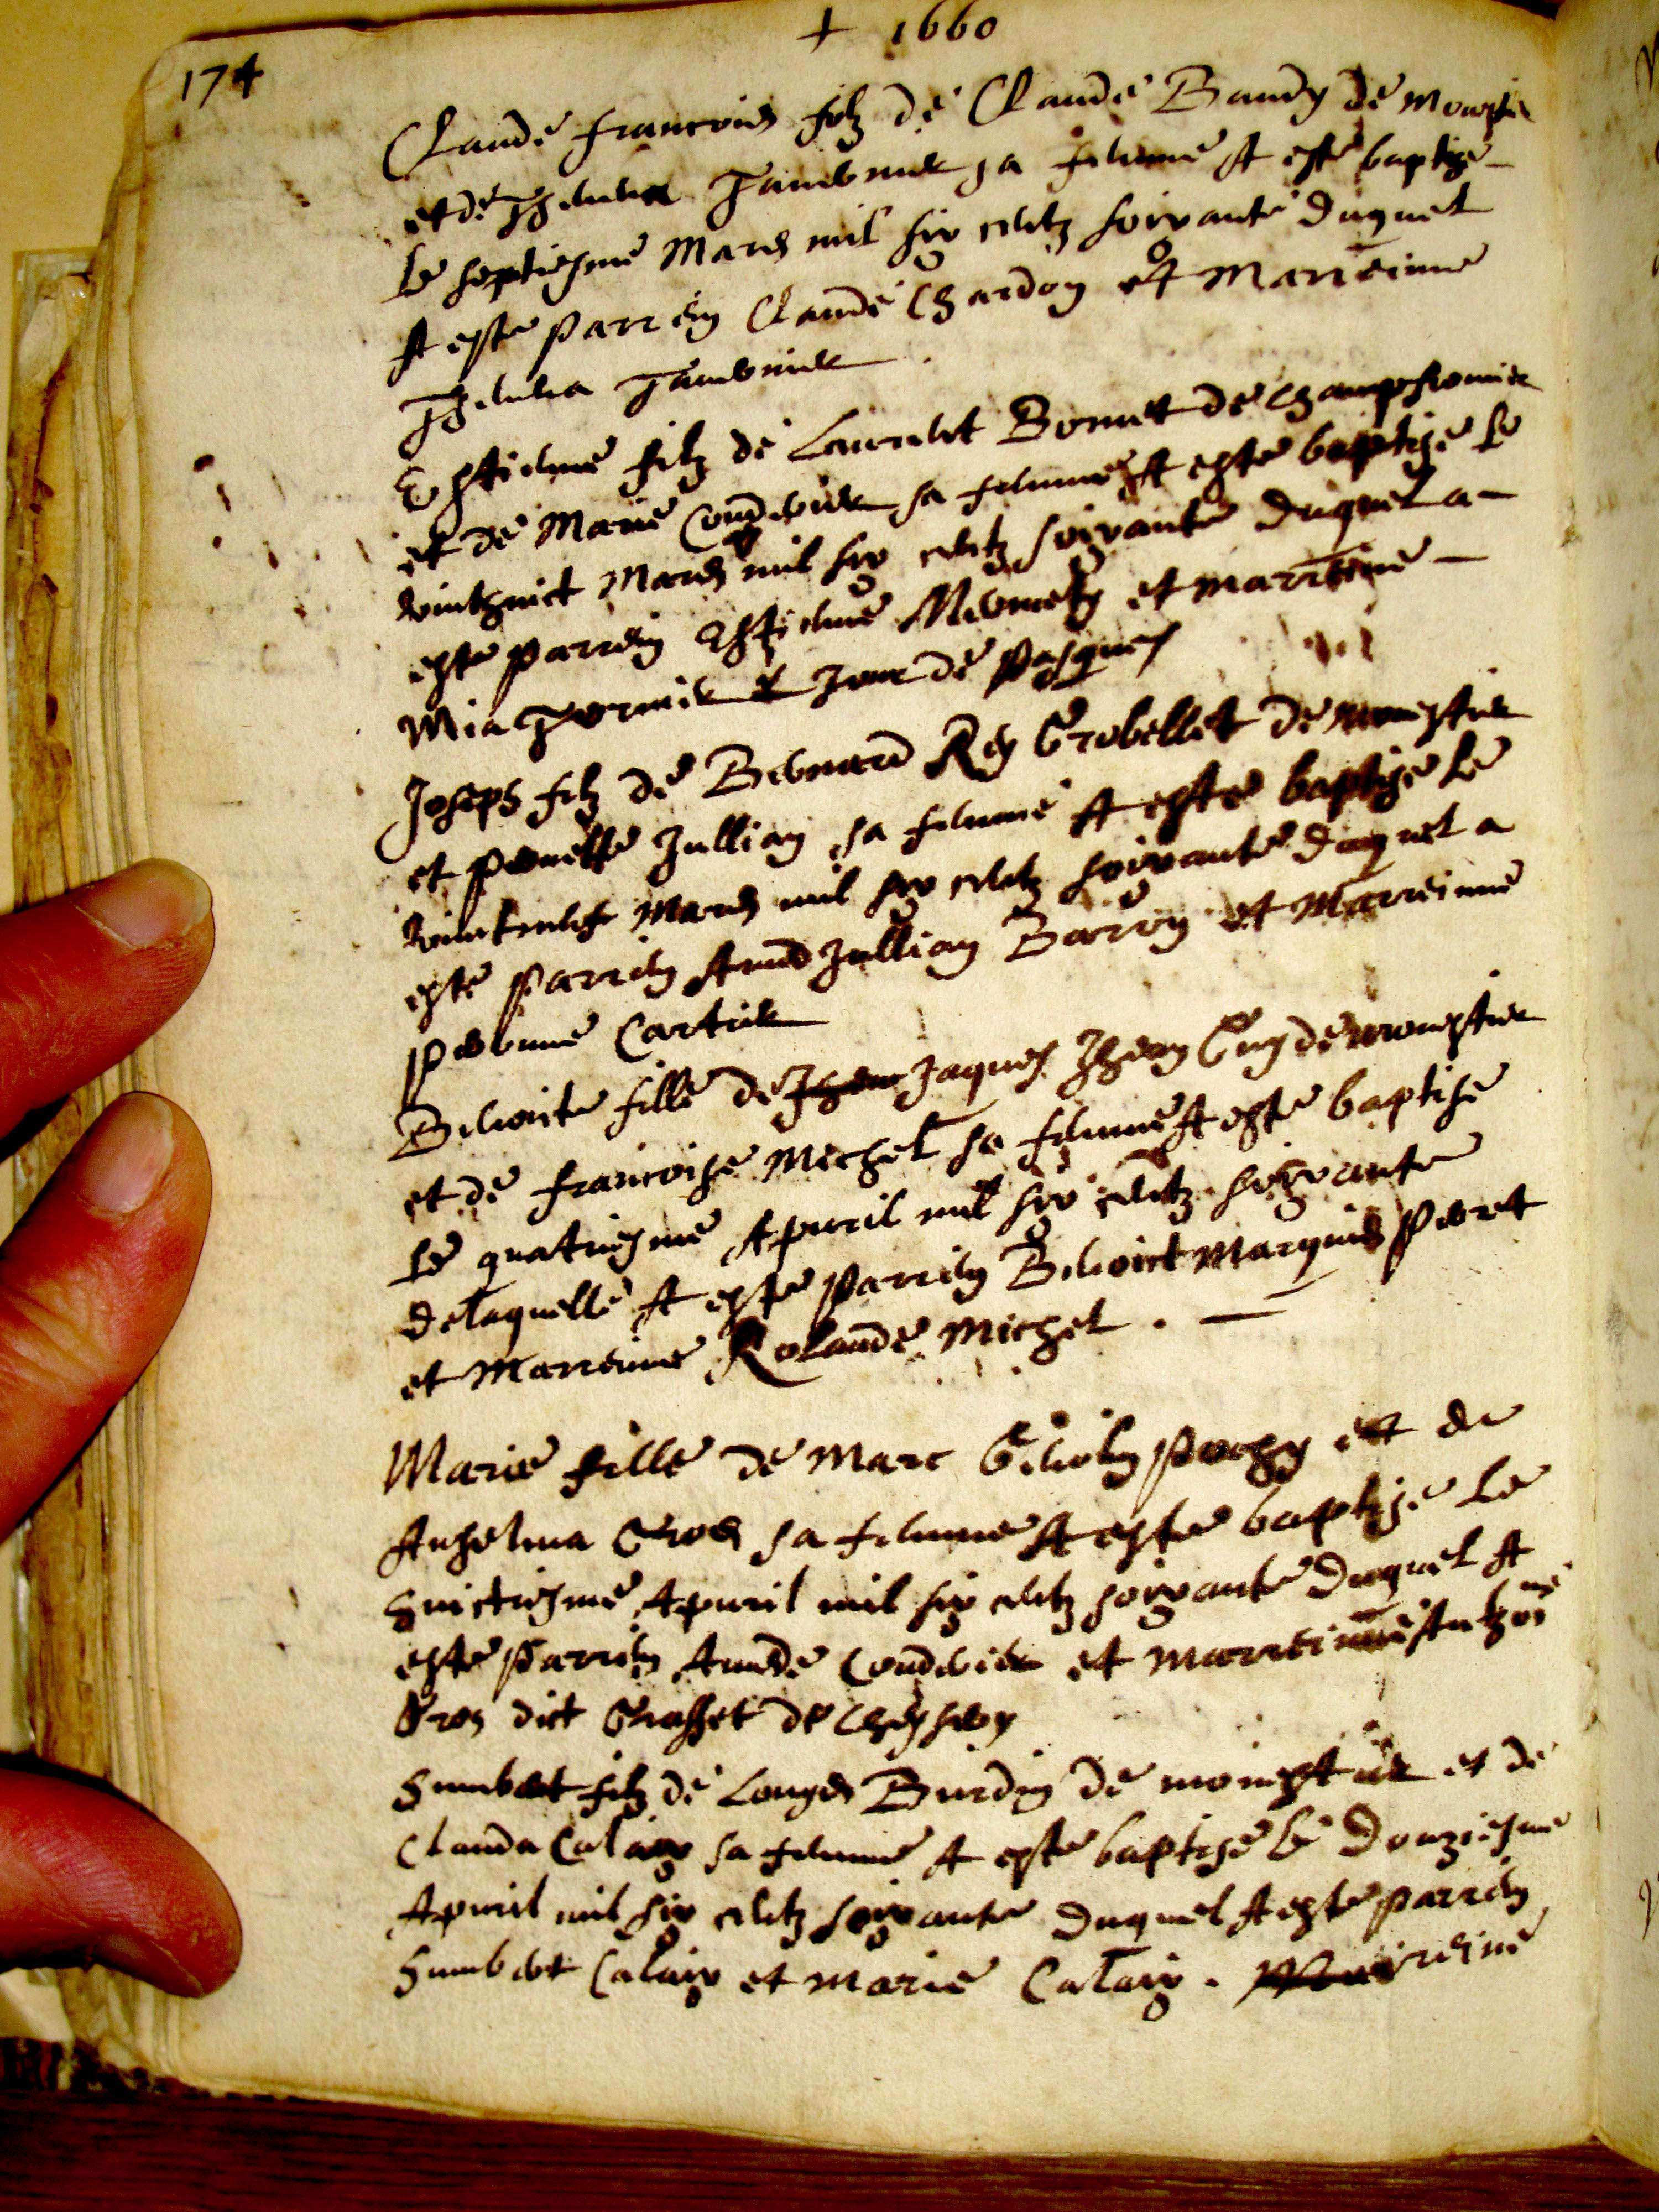 + 1660
174
Claude francois filz de Claude Baudy de Monestier
et de Thevena Tavernier sa femme A esté baptizé
le septiesme Mars mil six centz soixante duquel
A esté parrein Claude Chardon et Marreinne
Thevena Tavernier
Estienne filz de Laurent Bonnet de Champfromier
et de Marie Coudurier sa femme A esté baptizé le
vinthuict Mars mil six centz soixante duquel a
esté parrein Estienne et marreine
Mia Tornier Jour de Pasques
Joseph filz de Bernard Rey Grobellet de monestier
et pernette Jullian sa femme A esté baptizé le
Mars mil six centz soixante duquel a
esté parrein Amed Jullian Barron et Marreinne
pernne Cartier
Benoite fille de Jhean Jaques Jhean Guy de monestier
et de francoise Michel sa femme A esté baptisé
le quatriesme Apvril mil six centz soixante
delaquelle A esté parrein Benoict Marquis peret
et Marreinne Rolande Michel .
Marie fille de Marc Genolin et de
Anthelma Gros sa femme A esté baptizé le
huictiesme Apvril mil six centz soixante duquel A
esté parrein Amede Coudurier et marreinne Anthoine
Gros dict Grasset de Chesery
Humbert filz de Louys Burdin de monestier et de
Clauda Calaix sa femme A esté baptisé le Douziesme
Apvril mil six centz soixante duquel A esté parrein
Humbert Calaix et Marie Calaix . Marreine